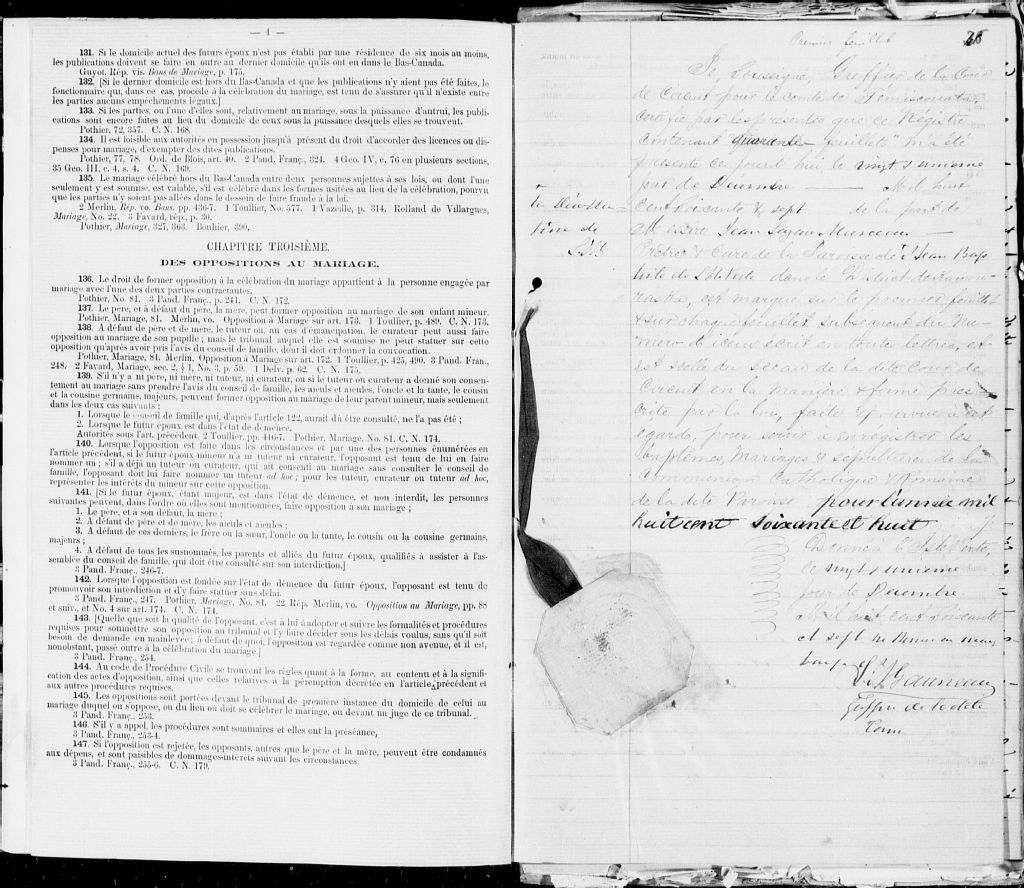 — 4 —
131. Si le domicile actuel des futurs époux n'est pas établi par une résidence de six mois au moins,
les publications doivent se faire en outre au dernier domicile qu'ils ont eu dans le Bas-Canada.
Guyot. Rép. vis. Bans de Mariage, p. 175.
132. [Si le dernier domicile est hors du Bas-Canada et que les publications n'y aient pas été faites, le
fonctionnaire qui, dans ce cas, procède à la célébration du mariage, est tenu de s'assurer qu'il n'existe entre
les parties aucuns empêchements légaux.]
133. Si les parties, ou l'une d'elles, sont, relativement au mariage, sous la puissance d'autrui, les publi-
cations sont encore faites au lieu du domicile de ceux sous la puissance desquels elles se trouvent.
Pothier, 72, 357. C. N. 168.
134. Il est loisible aux autorités en possession jusqu'à présent du droit d'accorder des licences ou dis-
penses pour mariage, d'exempter des dites publications.
Pothier, 77, 78. Ord. de Blois, art. 40. 2 Pand. Franç., 324. 4 Geo. IV, c. 76 en plusieurs sections,
35 Geo. III, c. 4, s. 4. C. N. 169.
135. Le mariage célébré hors du Bas-Canada entre deux personnes sujettes à ses lois, ou dont l'une
seulement y est soumise, est valable, s'il est célébré dans les formes usitées au lieu de la célébration, pourvu
que les parties n'y soient pas allées dans le dessein de faire fraude à la loi.
2 Merlin, Rép. vo. Bans, pp. 436-7. 1 Toullier, No. 577. 1 Vazeille, p. 314. Rolland de Villargues,
Mariage, No. 22. 3 Favard, rép., p. 30.
Pothier, Mariage, 327, 363. Bouhier, 390.
CHAPITRE TROISIÈME.
DES OPPOSITIONS AU MARIAGE.
136. Le droit de former opposition à la célébration du mariage appartient à la personne engagée par
mariage avec l'une des deux parties contractantes.
Pothier, No. 81. 3 Pand. Franç., p. 241. C. N. 172.
137. Le père, et à défaut du père, la mère, peut former opposition au mariage de son enfant mineur.
Pothier, Mariage, 81. Merlin, vo. Opposition à Mariage sur art. 173. 1 Toullier, p. 489. C. N. 173.
138. A défaut de père et de mère, le tuteur ou, au cas d'émancipation, le curateur peut aussi faire
opposition au mariage de son pupille; mais le tribunal auquel elle est soumise ne peut statuer sur cette
opposition qu'après avoir pris l'avis du conseil de famille, dont il doit ordonner la convocation.
Pothier, Mariage, 81. Merlin, Opposition à Mariage sur art. 172. 1 Toullier, p. 425, 490. 3 Pand. Fran.,
248. 2 Favard, Mariage, sec. 2, § 1, No. 3, p. 59. 1 Delv. p. 62. C. N. 175.
139. S'il n'y a ni père, ni mère, ni tuteur, ni curateur, ou si le tuteur ou curateur a donné son consen-
tement au mariage sans prendre l'avis du conseil de famille, les aïeuls et aïeules, l'oncle et la tante, le cousin
et la cousine germains, majeurs, peuvent former opposition au mariage de leur parent mineur, mais seulement
dans les deux cas suivants:
1. Lorsque le conseil de famille qui, d'après l'article 122, aurait dû être consulté, ne l'a pas été;
2. Lorsque le futur époux est dans l'état de démence.
Autorités sous l'art. précédent. 2 Toullier, pp. 446-7. Pothier, Mariage, No. 81. C. N. 174.
140. Lorsque l'opposition est faite dans les circonstances et par une des personnes énumérées en
l'article précédent, si le futur époux mineur n'a ni tuteur ni curateur, l'opposant est tenu de lui en faire
nommer un; s'il a déjà un tuteur ou curateur, qui ait consenti au mariage sans consulter le conseil de
famille, l'opposant doit lui faire nommer un tuteur ad hoc; pour les tuteur, curateur ou tuteur ad hoc,
représenter les intérêts du mineur sur cette opposition.
141. [Si le futur époux, étant majeur, est dans l'état de démence, et non interdit, les personnes
suivantes peuvent, dans l'ordre où elles sont mentionnées, faire opposition à son mariage;
1. Le père, et à son défaut, la mère;
2. A défaut de père et de mère, les aïeuls et aïeules;
3. A défaut de ces derniers, le frère ou la sœur, l'oncle ou la tante, le cousin ou la cousine germains,
majeurs;
4. A défaut de tous les susnommés, les parents et alliés du futur époux, qualifiés à assister à l'as-
semblée du conseil de famille, qui doit être consulté sur son interdiction.]
3 Pand. Franç., 246-7.
142. Lorsque l'opposition est fondée sur l'état de démence du futur époux, l'opposant est tenu de
promouvoir son interdiction et d'y faire statuer sans délai.
3 Pand. Franç., 247. Pothier, Mariage, No. 81. 22 Rép. Merlin, vo. Opposition au Mariage, pp. 88
et suiv., et No. 4 sur art. 174. C. N. 174.
143. [Quelle que soit la qualité de l'opposant, c'est à lui à adopter et suivre les formalités et procédures
requises pour soumettre son opposition au tribunal et l'y faire décider sous les délais voulus, sans qu'il soit
besoin de demande en mainlevée; à défaut de quoi, l'opposition est regardée comme non avenue, et il est,
nonobstant, passé outre à la célébration du mariage.]
3 Pand. Franç., 254.
144. Au code de Procédure Civile se trouvent les règles quant à la forme, au contenu et à la signifi-
cation des actes d'opposition, ainsi que celles relatives à la péremption décrétée en l'article précédent et
aux autres procédures requises.
145. Les oppositions sont portées devant le tribunal de première instance du domicile de celui au
mariage duquel on s'oppose, ou du lieu où doit se célébrer le mariage, ou devant un juge de ce tribunal.
3 Pand. Franç., 253.
146. S'il y a appel, les procédures sont sommaires et elles ont la préséance,
3 Pand. Franç., 253-4.
147. Si l'opposition est rejetée, les opposants, autres que le père et la mère, peuvent être condamnés
aux dépens, et sont paisibles de dommages-intérêts suivant les circonstances.
3 Pand. Franç., 255-6. C. N. 179.
Premier feuillet
Je, Soussigné, Greffier de la Cour
de Circuit pour le comté de Témiscouata
certifie par les présentes que ce Régistre
contenant quarante feuillets m'a été
présenté ce jourd'hui le vingt & unième
jour de Décembre — Mil huit
cent soixante & sept de la part de
Messire Jean
Prêtre & Curé de la Paroisse de St Jean Bap
tiste de l'Isle Verte dans le District de Kamou-
raska, est margé sur le premier feuillet
& sur chaque feuillet subséquent du Nu-
mero d'iceux écrit en toutes lettres, et
est scellé du sceau de la dite Cour de
Circuit en la manière & forme pres-
crite par la loi, faite & pourvue à cet
égard, pour servir à enregistrer les
Baptêmes, Mariages & Sépultures de la
Communion Catholique & Romaine
de la dite Paroisse pour l'année mil
huit cent soixante et huit
Donné à l'Isle Verte,
ce vingt & unième
jour de Décembre
Mil huit cent soixante
et sept
Greffier de la dite
Cour